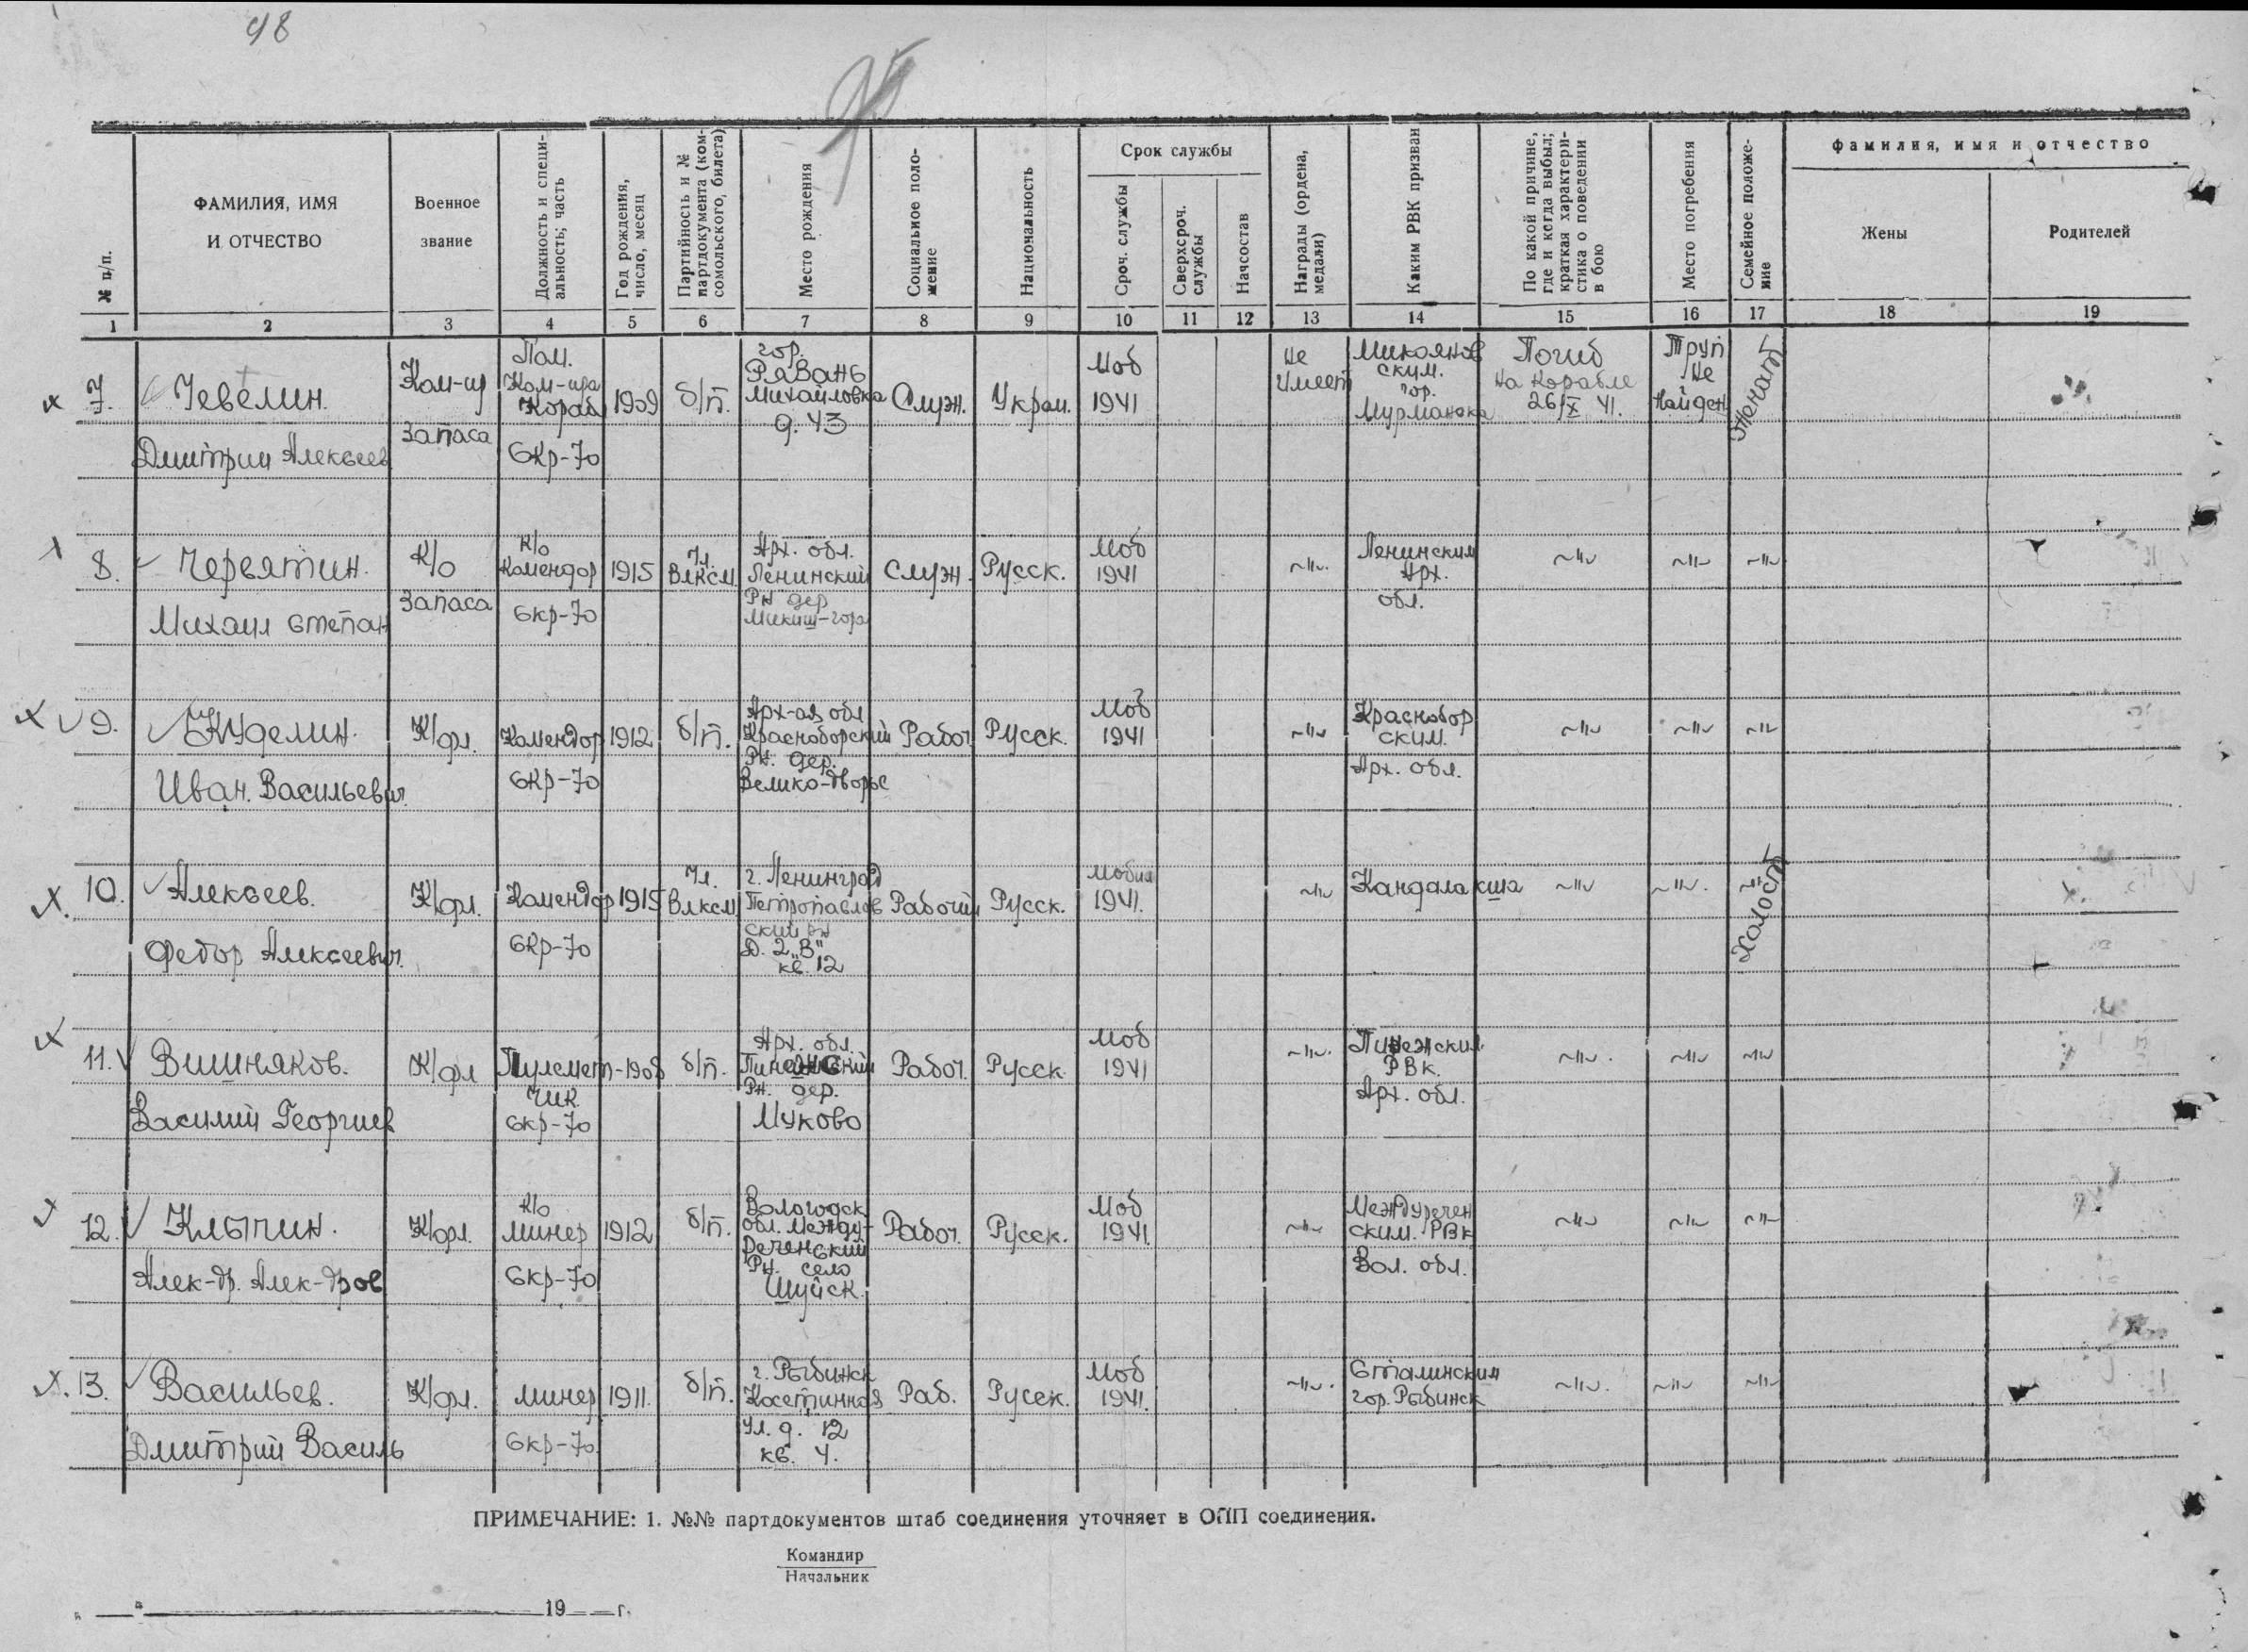 48
ФАМИЛИЯ, ИМЯ
И ОТЧЕСТВО
Военное
звание
Должность и специ-
альность; часть
Год рождения,
число, месяц
Партийность и №
партдокумента (ком-
сомольского, билета)
Место рождения
Социальное поло-
жение
Национальность
Срок службы
Сроч. службы
Сверхсроч.
службы
Начсостав
Награды (ордена,
медали)
Каким РВК призван
По какой причине,
где и когда выбыл;
краткая характери-
стика о поведении
в бою
Место погребения
Семейное положе-
ние
фамилия, имя и отчество
Жены
Родителей
№ п/п.
1 2 3 4 5 6 7 8 9 10 11 12 13 14 15 16 17 18 19
7.
Чевелин.
Дмитрий Алексеев
Ком-ир
Запаса
Пом.
Ком-ира
Кораб
СКр-70
1909
б/п.
гор.
Михайловка
д. 43
Служ.
Украи.
Моб
1941
не
имеет
Микоянов
ским.
гор.
Мурманска
Погиб
на корабле
26/X 41.
Труп
не
найден
женат
8.
Червятин.
Михаил Степан
К/о
Запаса
К/о
Комендор
СКр-70
1915
Чл.
ВЛКСМ.
Арх. обл.
Ленинский
РН дер
Микиш-гора
Служ.
Русск.
Моб
1941
~"~.
Ленинским
Арх.
обл.
~"~
~"~
~"~
9.
Куделин.
Иван. Васильевич.
К/фл.
Комендор
СКр-70
1912
б/п.
Арх-ая обл
Красноборский
РН. дер.
Велико-дворье
Рабоч
Русск.
Моб
1941
~"~
Краснобор
ским.
Арх. обл.
~"~
~"~
~"~
10.
Алексеев.
Федор Алексеевич.
К/фл.
Комендор
СКр-70
1915
Чл.
ВЛКСМ
г. Ленинград
Петропавлов
ский РН
Д. 2 „В"
кв. 12
Рабочий
Русск.
1941.
~"~
Кандалакша
~"~
~"~.
Холост
11.
Вишняков.
Василий Георгиев
К/фл
Пулемет-
чик
СКр-70
1908
б/п.
Арх. обл.
Пинежский
РН. дер.
Муково
Рабоч.
Русск
Моб
1941
~"~.
Пинежским
РВК.
Арх. обл.
~"~.
~"~
~"~
12.
Клычин.
Алек-др. Алек-дров
К/фл.
К/о
минер
СКр-70
1912
б/п.
Вологодск
обл. Между-
реченский
РН. село
Шуйск.
Рабоч.
Русск.
Моб
1941.
~"~
Междуречен
ским. РВК
Вол. обл.
~"~
~"~
~"~
13.
Васильев.
Дмитрий Василь
К/фл.
минер
СКр-70.
1911.
б/п.
г. Рыбинск
Ул. д. 12
кв. 4.
Раб.
Русск.
Моб
1941.
~"~.
Сталинским
гор. Рыбинск
~"~.
~"~
~"~
ПРИМЕЧАНИЕ: 1. №№ партдокументов штаб соединения уточняет в ОПП соединения.
Командир
Начальник
„ " 19 г.